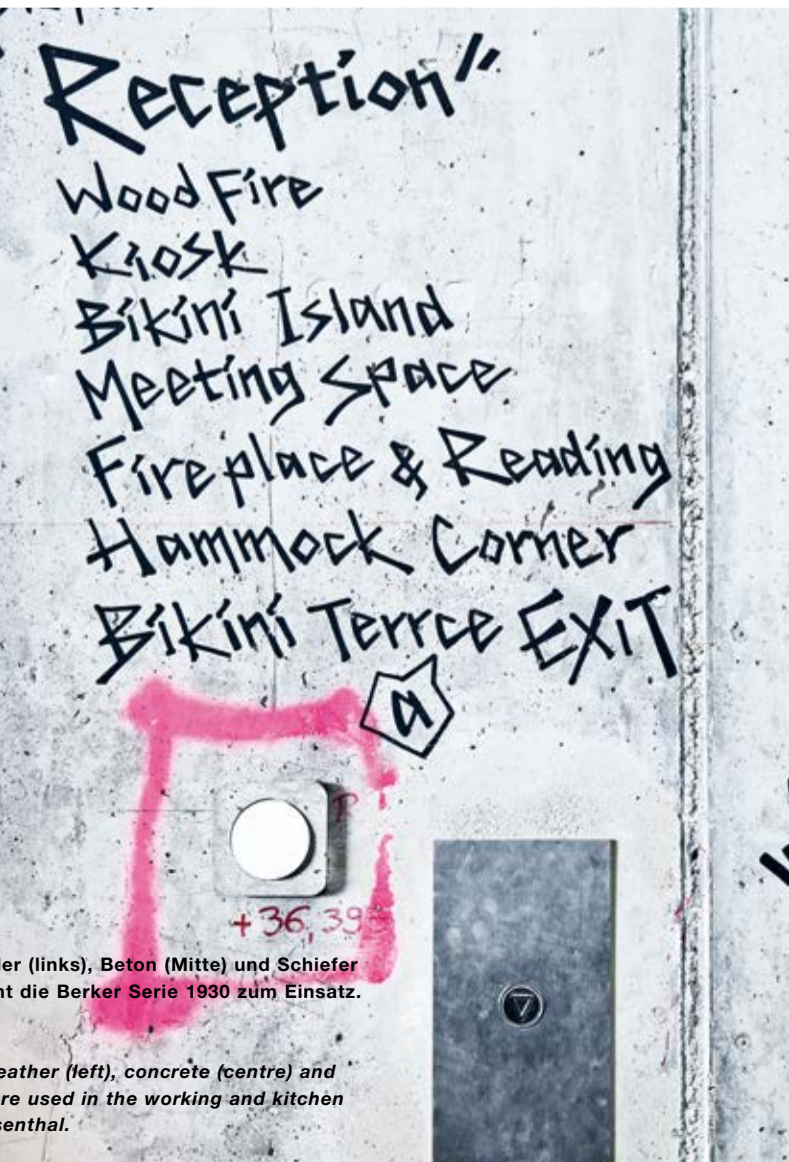 Reception"
Wood Fire
Kiosk
Bikini Island
Meeting Space
Fireplace & Reading
Hammock Corner
Bikini Terrce EXiT
a
+36,39
(links), Beton (Mitte) und Schiefer
die Berker Serie 1930 zum Einsatz.
(left), concrete (centre) and
used in the working and kitchen